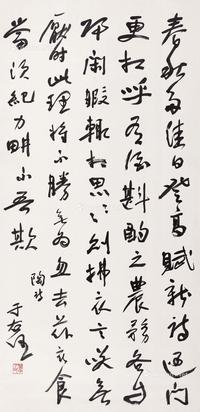 春秋多佳日登高賦新詩過門
更相呼有酒斟酌之農務各自
歸閑暇輒相思〻則披衣言笑無
厭時此理將不勝無為忽去茲衣食
當須紀力畊不吾欺
陶詩
于右任